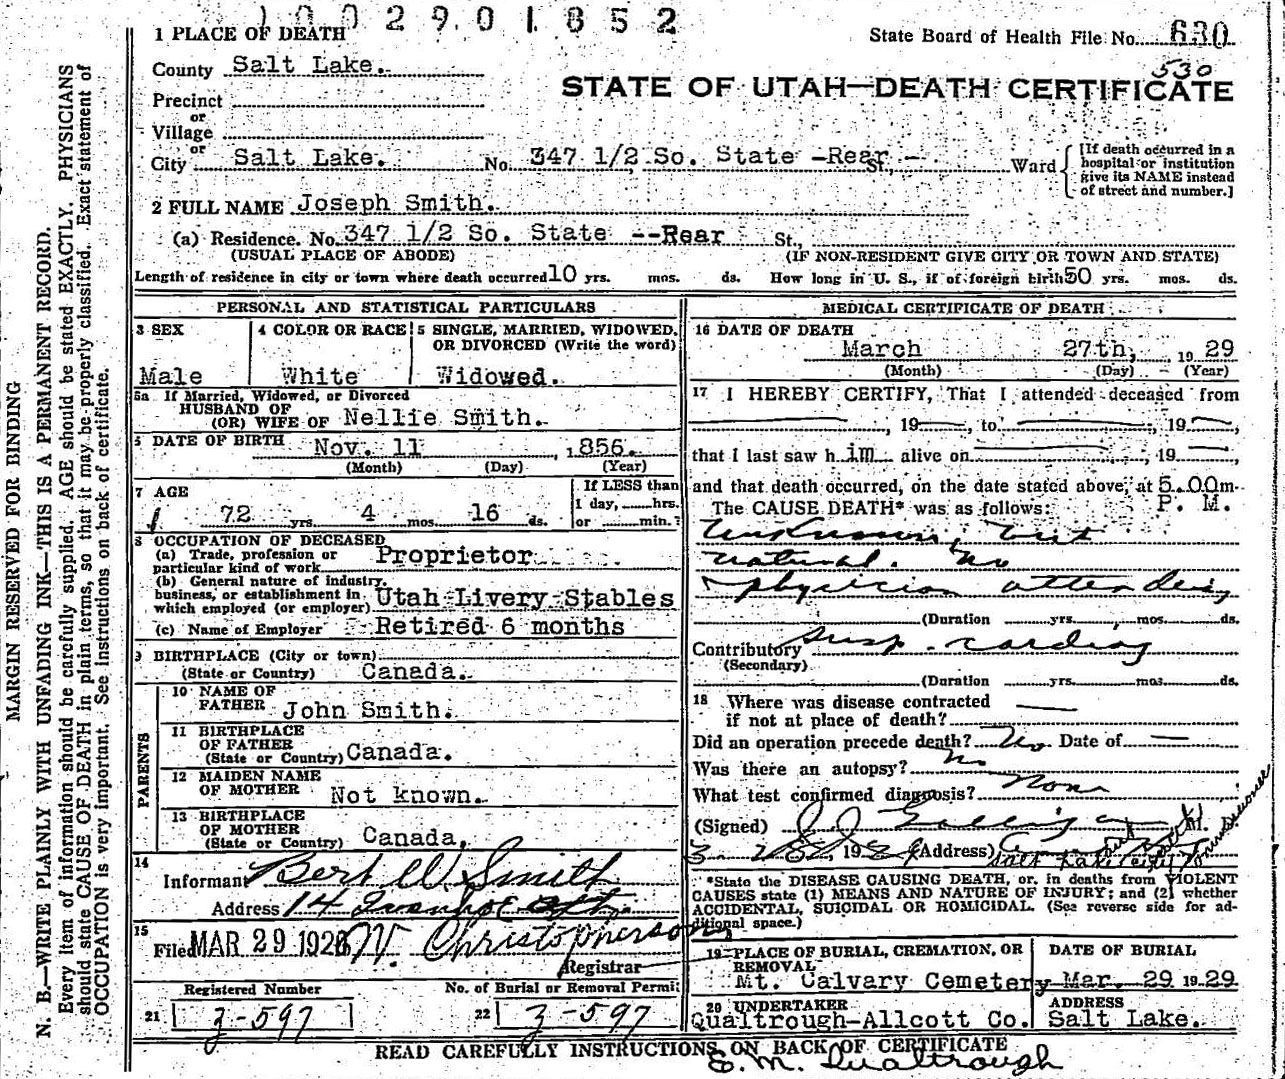 1002901852
1 PLACE OF DEATH
State Board of Health File No. 630
530
County Salt Lake.
STATE OF UTAH—DEATH CERTIFICATE
Precinct
or
Village
or
City Salt Lake. No. 347 1/2 So. State -Rear - St., Ward
[If death occurred in a
hospital or institution
give its NAME instead
of street and number.]
2 FULL NAME Joseph Smith.
(a) Residence. No. 347 1/2 So. State --Rear St.,
(USUAL PLACE OF ABODE) (IF NON-RESIDENT GIVE CITY OR TOWN AND STATE)
Length of residence in city or town where death occurred 10 yrs. mos. ds. How long in U. S., if of foreign birth 50 yrs. mos. ds.
PERSONAL AND STATISTICAL PARTICULARS
3 SEX
Male
4 COLOR OR RACE
White
5 SINGLE, MARRIED, WIDOWED,
OR DIVORCED (Write the word)
Widowed.
5a If Married, Widowed, or Divorced
HUSBAND OF
(OR) WIFE OF Nellie Smith.
6 DATE OF BIRTH Nov. 11 , 1856.
(Month) (Day) (Year)
7 AGE
72 yrs. 4 mos. 16 ds.
If LESS than
1 day, hrs.
or min.?
8 OCCUPATION OF DECEASED
(a) Trade, profession or
particular kind of work Proprietor
(b) General nature of industry.
business, or establishment in
which employed (or employer) Utah Livery Stables
(c) Name of Employer Retired 6 months
9 BIRTHPLACE (City or town)
(State or Country) Canada.
PARENTS
10 NAME OF
FATHER John Smith.
11 BIRTHPLACE
OF FATHER
(State or Country) Canada.
12 MAIDEN NAME
OF MOTHER Not known.
13 BIRTHPLACE
OF MOTHER
(State or Country) Canada,
14
Informant Bert W. Smith
Address 14 Ivanhoe Apt.
15
Filed MAR 29 192 W. Christopherson
Registrar
Registered Number No. of Burial or Removal Permit
21 3-597 22 3-597
MEDICAL CERTIFICATE OF DEATH
16 DATE OF DEATH
March 27th, 1929
(Month) (Day) (Year)
17 I HEREBY CERTIFY, That I attended deceased from
, 19 , to , 19 ,
that I last saw h im alive on , 19 ,
and that death occurred, on the date stated above, at 5.00 m.
P. M.
The CAUSE DEATH* was as follows:
Unknown, but
natural. No
physician attending
(Duration yrs. mos. ds.
Contributory susp. cardiac
(Secondary)
(Duration yrs. mos. ds.
18 Where was disease contracted
if not at place of death?
Did an operation precede death? No Date of
Was there an autopsy? no
What test confirmed diagnosis? none
(Signed) M. D.
3-28, 1929 (Address)
Salt Lake City Commissioner
*State the DISEASE CAUSING DEATH, or, in deaths from VIOLENT
CAUSES state (1) MEANS AND NATURE OF INJURY; and (2) whether
ACCIDENTAL, SUICIDAL OR HOMICIDAL. (See reverse side for ad-
ditional space.)
19 PLACE OF BURIAL, CREMATION, OR
REMOVAL
Mt. Calvary Cemetery
DATE OF BURIAL
Mar. 29 1929.
20 UNDERTAKER
Qualtrough-Allcott Co.
ADDRESS
Salt Lake.
READ CAREFULLY INSTRUCTIONS ON BACK OF CERTIFICATE
E. M. Qualtrough
MARGIN RESERVED FOR BINDING
N. B.—WRITE PLAINLY WITH UNFADING INK—THIS IS A PERMANENT RECORD.
Every item of information should be carefully supplied. AGE should be stated EXACTLY. PHYSICIANS
should state CAUSE OF DEATH in plain terms, so that it may be properly classified. Exact statement of
OCCUPATION is very important. See instructions on back of certificate.